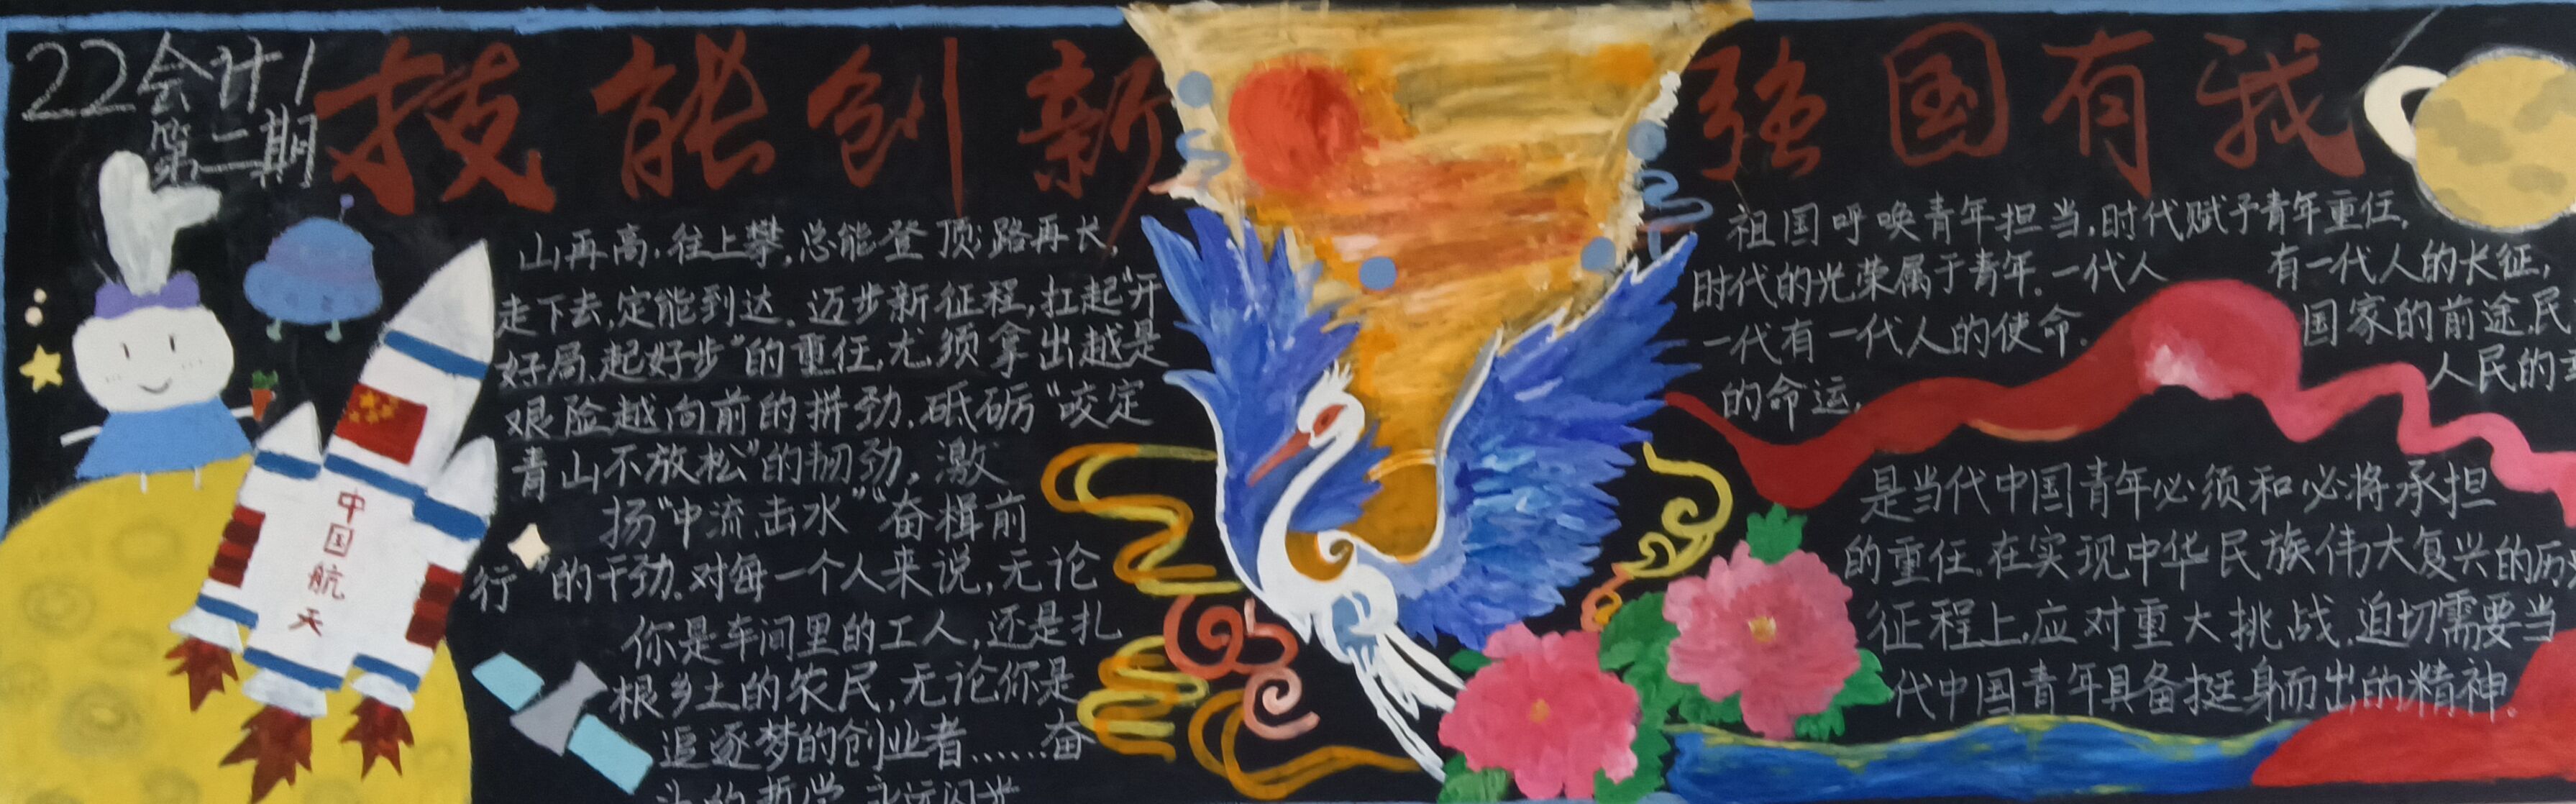 22会计1
第二期
技能创新
强国有我
山再高,往上攀,总能登顶;路再长,
走下去,定能到达.迈步新征程,扛起“开
好局.起好步”的重任,尤须拿出越是
艰险越向前的拼劲.砥砺“咬定
青山不放松”的韧劲,激
扬“中流击水”“奋楫前
行”的干劲.对每一个人来说,无论
你是车间里的工人,还是扎
根乡土的农民,无论你是
追逐梦的创业者……奋
斗的哲学永远闪光
中国航天
祖国呼唤青年担当,时代赋予青年重任.
时代的光荣属于青年.一代人有一代人的长征,
一代有一代人的使命.国家的前途,民
的命运,人民的
是当代中国青年必须和必将承担
的重任.在实现中华民族伟大复兴的历
征程上,应对重大挑战,迫切需要当
代中国青年具备挺身而出的精神。